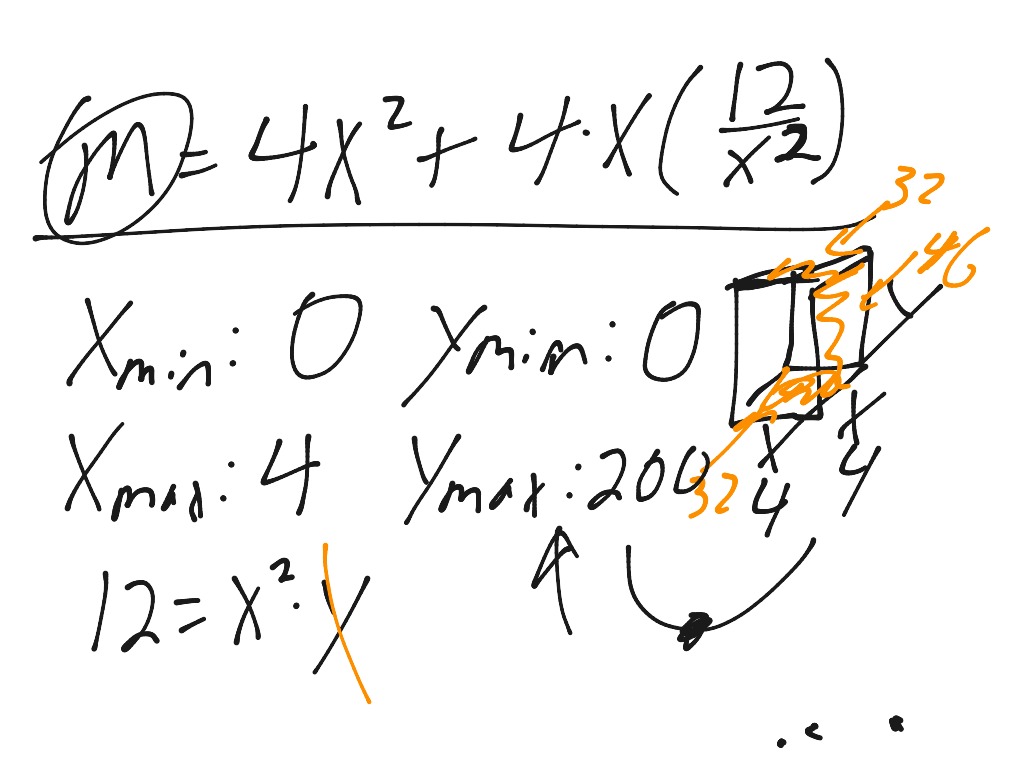 m = 4x² + 4·x(12/x²)
32
46
Xmin: 0 Ymin: 0
Xmax: 4 Ymax: 200
x x
32 4 4
12 = x²·y